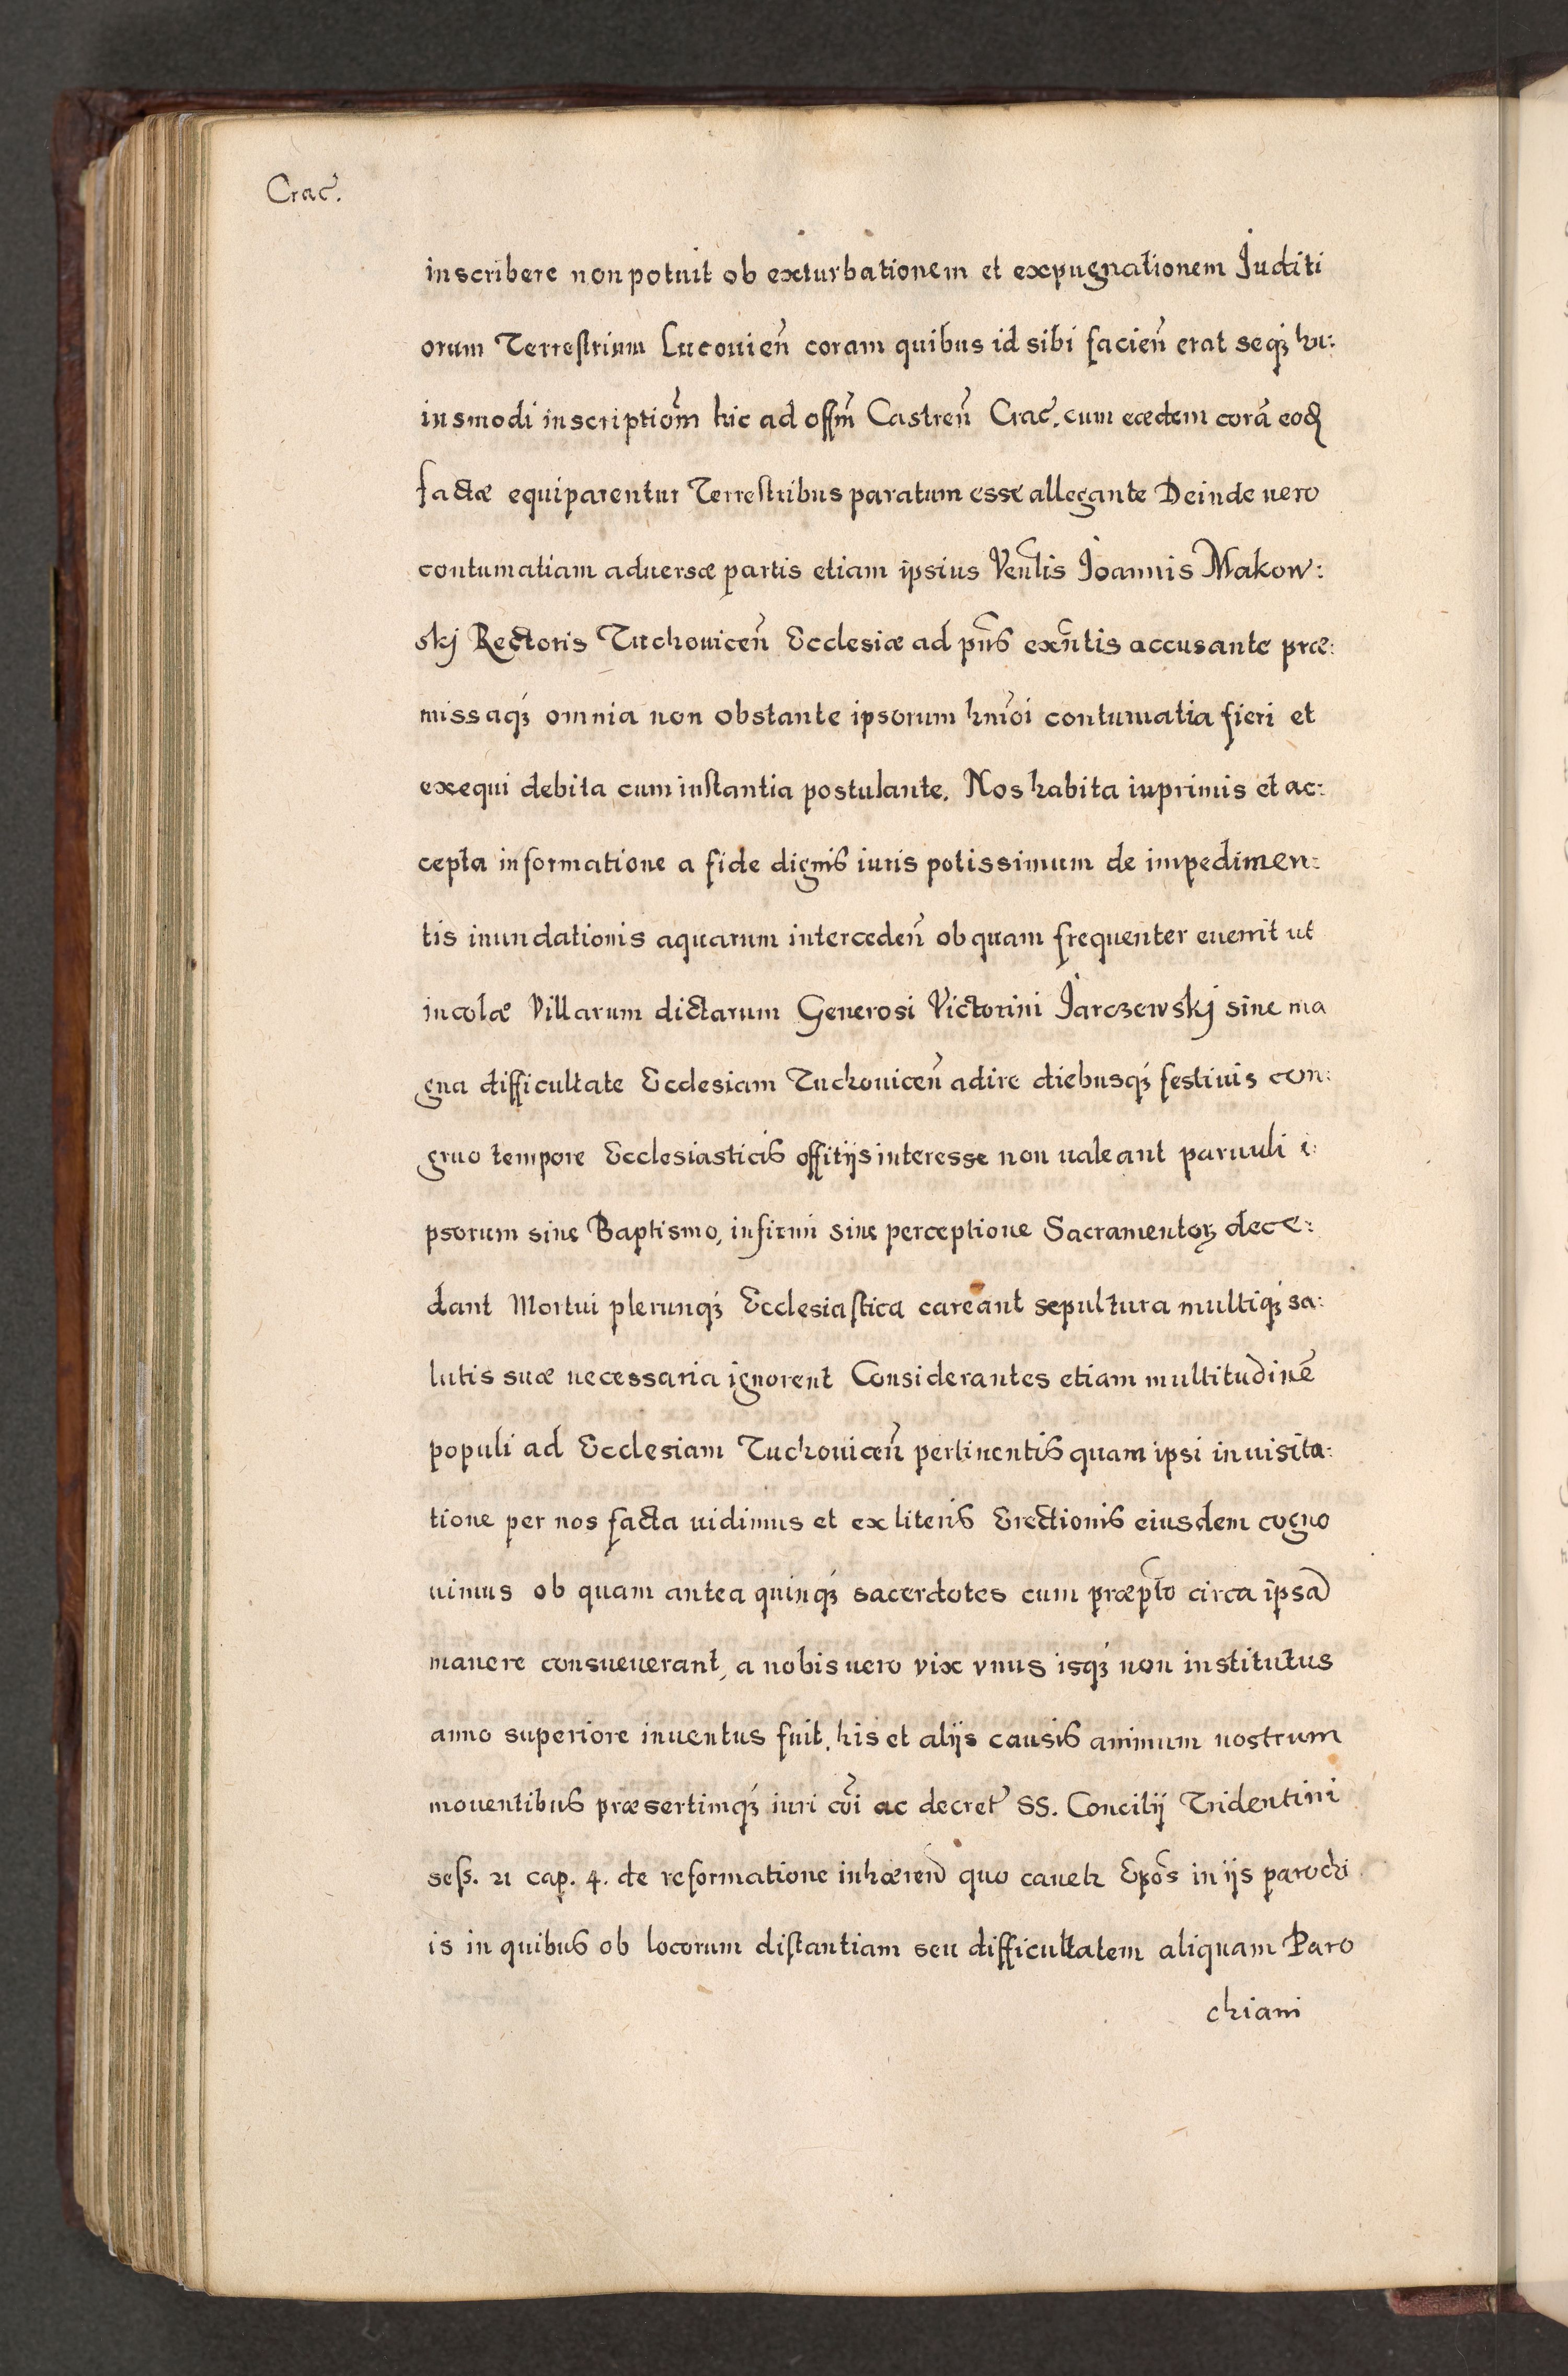 Crac̃.
inscribere non potuit ob exturbationem et expugnationem Juditi
orum Terrestrium Lucouień coram quibus id sibi facień erat seqꝫ hu:
iusmodi inscriptiom̃ hic ad offm̃ Castreñ Crac̃. cum eædem corã eod̃
factæ equiparentur Terrestribus paratum esse allegante Deinde uero
contumatiam aduersæ partis etiam ipsius Venlis̃ Joannis Makow:
skj Rectoris Tuchouiceñ Ecclesiæ ad pñs exñtis accusante præ:
missaqꝫ omnia non obstante ipsorum hmõi contumatia fieri et
exequi debita cum instantia postulante. Nos habita inprimis et ac:
cepta informatione a fide dignis iuris potissimum de impedimen:
tis inundationis aquarum intercedeñ ob quam frequenter euenit ut
incolæ Villarum dictarum Generosi Victorini Jarczewskj sine ma
gna difficultate Ecclesiam Tuchouiceñ adire diebusqꝫ festiuis con:
gruo tempore Ecclesiasticis offitijs interesse non ualeant paruuli i:
psorum sine Baptismo, infirmi sine perceptione Sacramentoꝝ dece:
dant Mortui plerunqꝫ Ecclesiastica careant sepultura multiqꝫ sa:
lutis suæ necessaria ignorent Considerantes etiam multitudinẽ
populi ad Ecclesiam Tuchouiceñ pertinentis quam ipsi in uisita:
tione per nos facta uidimus et ex literis Erectionis eiusdem cogno
uimus ob quam antea quinqꝫ sacerdotes cum præpto circa ipsã
manere consueuerant, a nobis uero vix vnus isqꝫ non institutus
anno superiore inuentus fuit. his et alijs causis animum nostrum
mouentibus præsertimqꝫ iuri cõi ac decret̃ SS. Concilij Tridentini
sess. 21 cap. 4. de reformatione inhæreñd quo caueh Epõs in ijs parochi
is in quibus ob locorum distantiam seu difficultatem aliquam Paro
chiani